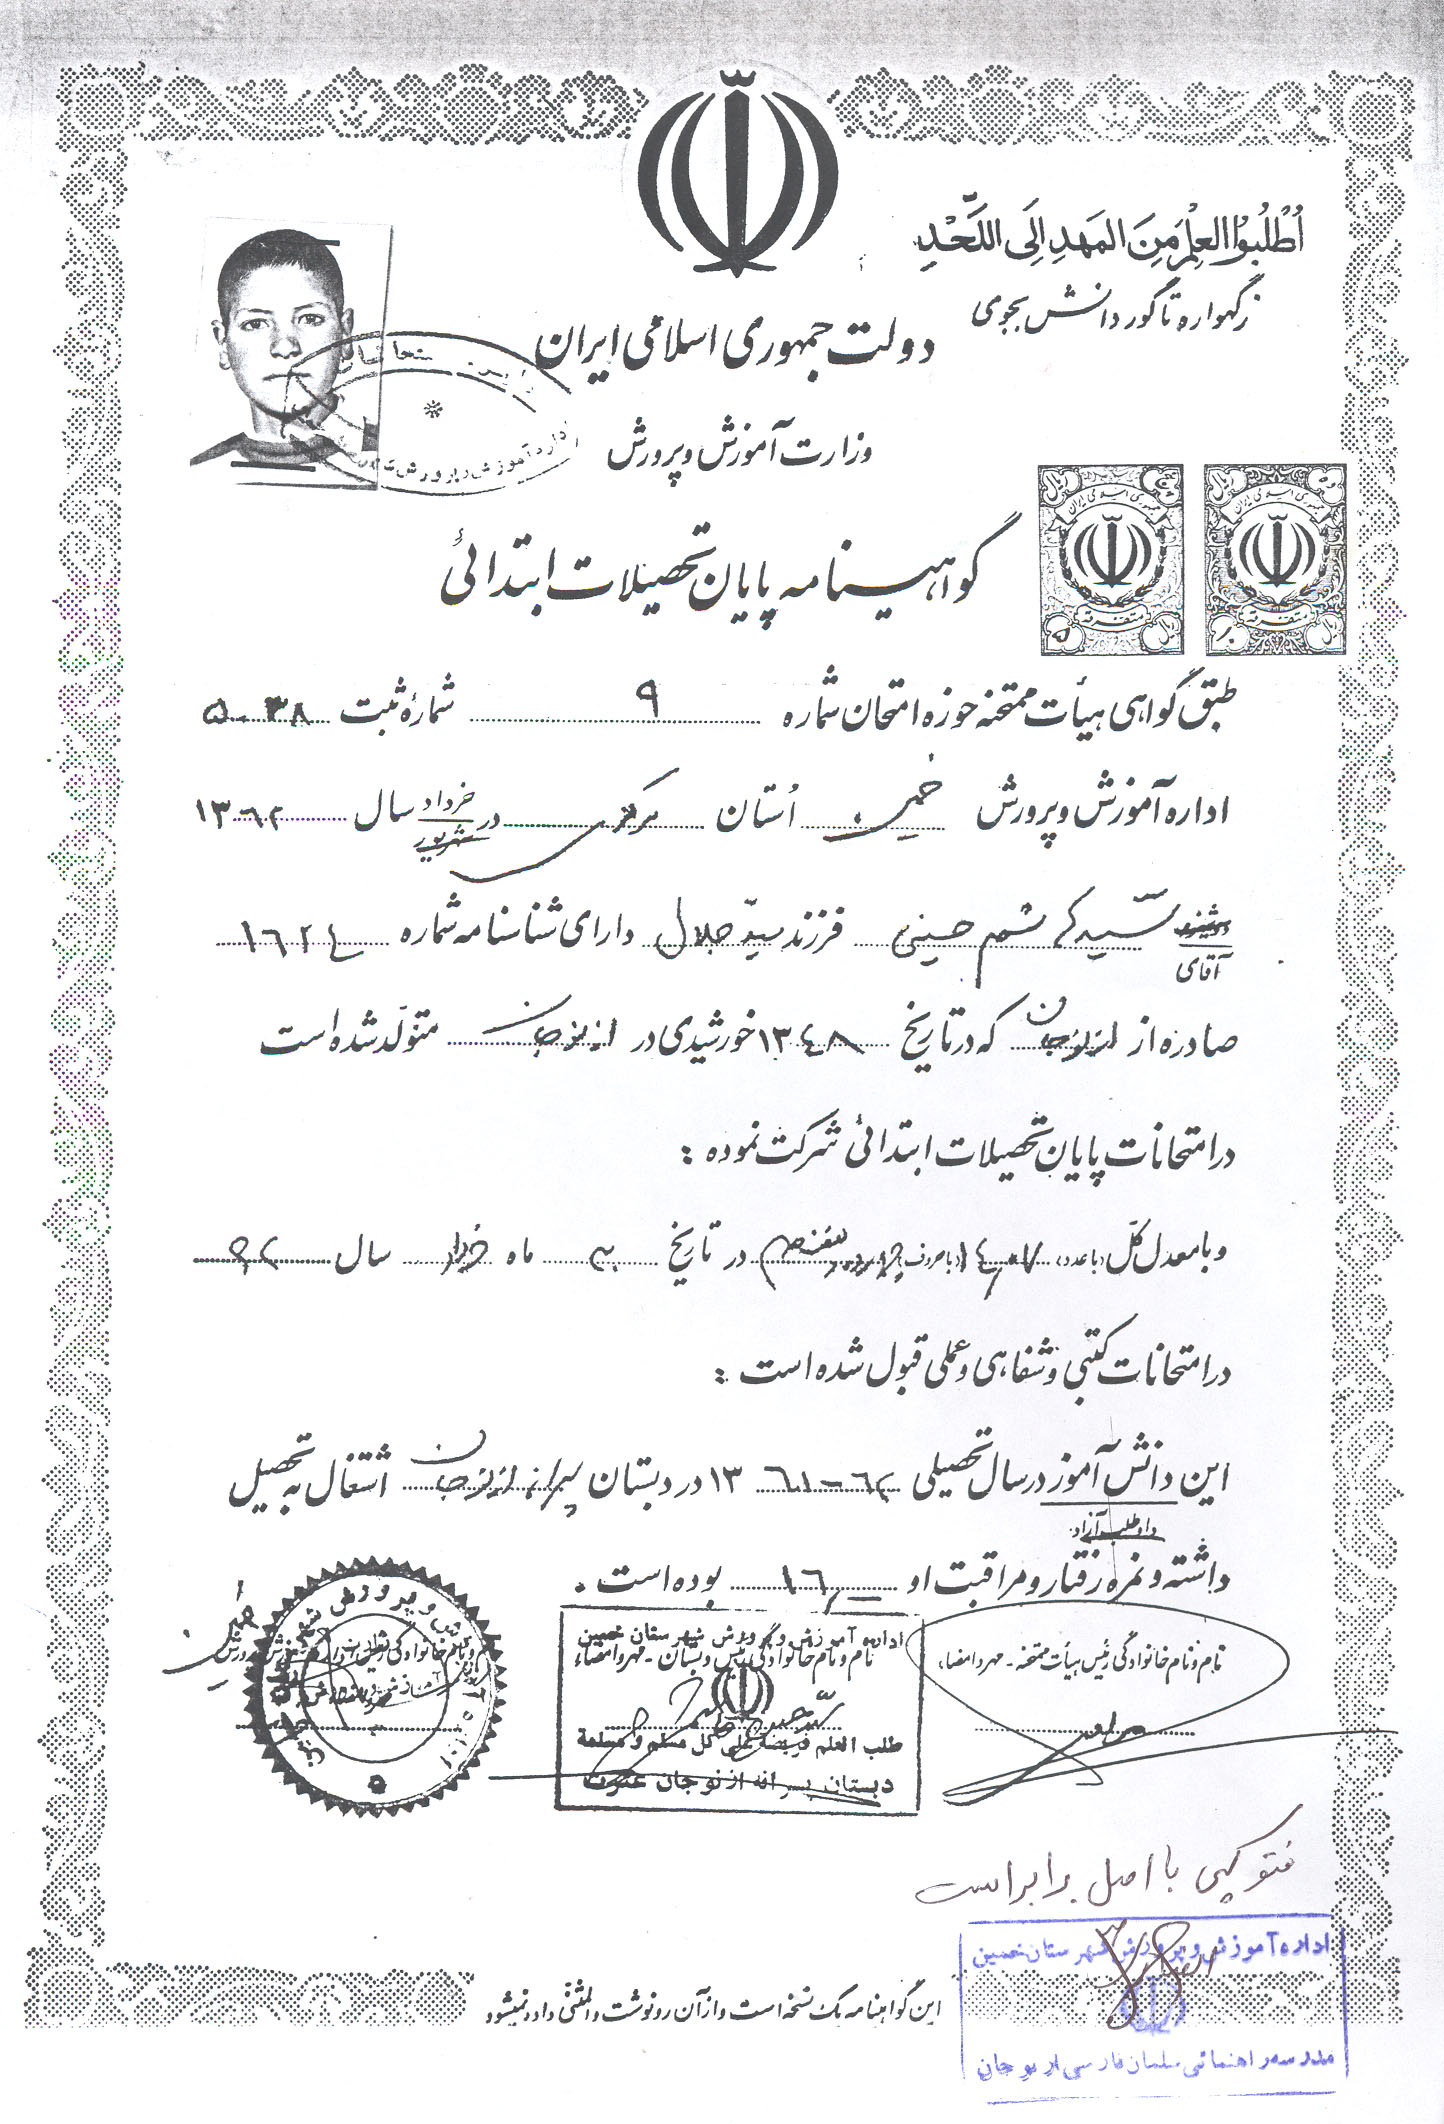 اُطْلُبُوا العِلْمَ مِنَ المَهدِ اِلَی اللَّحْدِ
ز گهواره تا گور دانش بجوی
دولت جمهوری اسلامی ایران
وزارت آموزش و پرورش
اداره آموزش و پرورش
گواهینامه پایان تحصیلات ابتدائی
جمهوری اسلامی ایران
متفرقه
۵ ریال
جمهوری اسلامی ایران
متفرقه
۱۰ ریال
طبق گواهی هیأت ممتحنه حوزه امتحان شماره ۹ شمارۀ ثبت ۵۰۳۸
اداره آموزش و پرورش خمین اُستان مرکزی در خرداد شهریور سال ۱۳۶۲
دوشیزه آقای سید کاظم حسینی فرزند سید جلال دارای شناسنامه شماره ۱۶۲۴
صادره از ازنوجان که در تاریخ ۱۳۴۸ خورشیدی در ازنوجان متولّد شده است
در امتحانات پایان تحصیلات ابتدائی شرکت نموده :
و با معدل کلّ (با عدد) ۱۴/۰۷ (با حروف) در تاریخ ماه خرداد سال ۶۲
در امتحانات کتبی و شفاهی و عملی قبول شده است :
این دانش آموز داوطلب آزاد در سال تحصیلی ۶۲-۶۱ ۱۳ در دبستان پسرانه ازنوجان اشتغال به تحصیل
داشته و نمره رفتار و مراقبت او ۱۶/ بوده است .
نام و نام خانوادگی رئیس هیأت ممتحنه - مهر و امضاء
اداره آموزش و پرورش شهرستان خمین
نام و نام خانوادگی رئیس دبستان - مهر و امضاء
طلب العلم فریضة علی کل مسلم و مسلمة
دبستان پسرانه ازنوجان
فتوکپی با اصل برابر است
اداره آموزش و پرورش شهرستان خمین
مدرسه راهنمائی سلمان فارسی ازنوجان
این گواهینامه یک نسخه است و از آن رونوشت و المثنی داده نمیشود